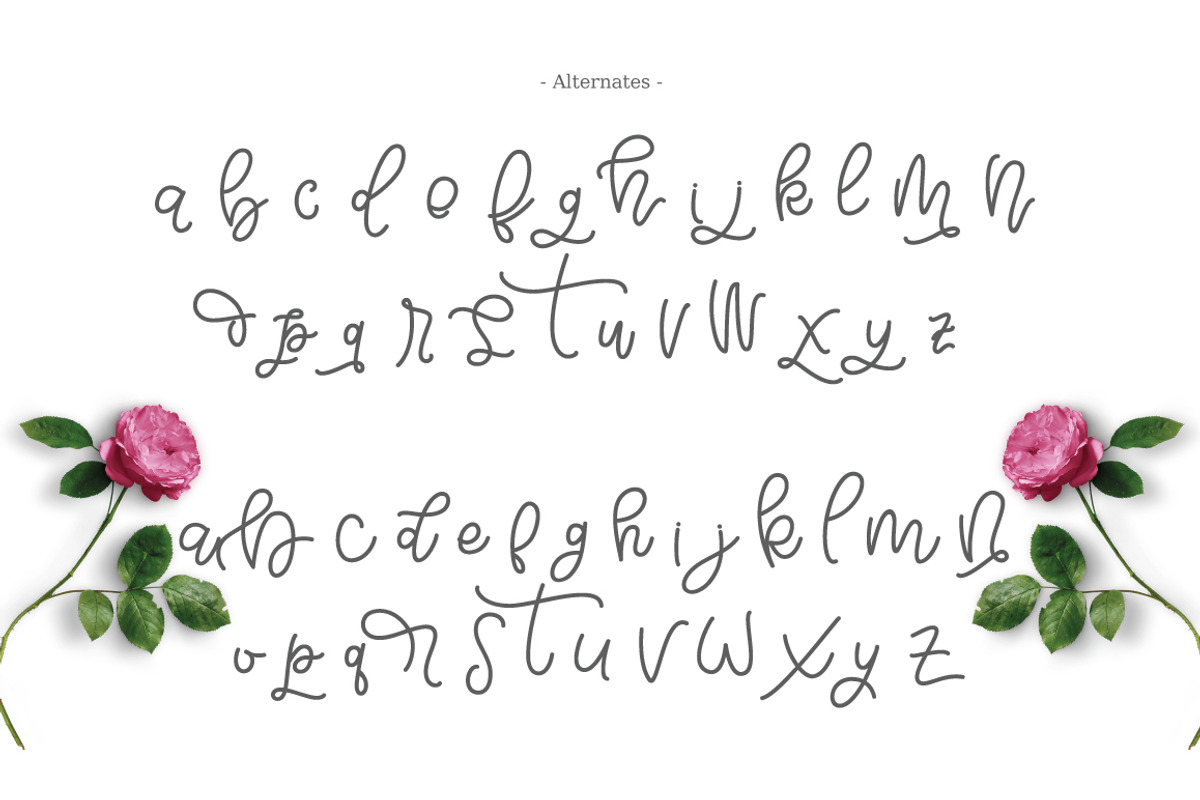 - Alternates -
a b c d e f g h i j k l m n
o p q r s t u v w x y z
a b c d e f g h i j k l m n
o p q r s t u v w x y z